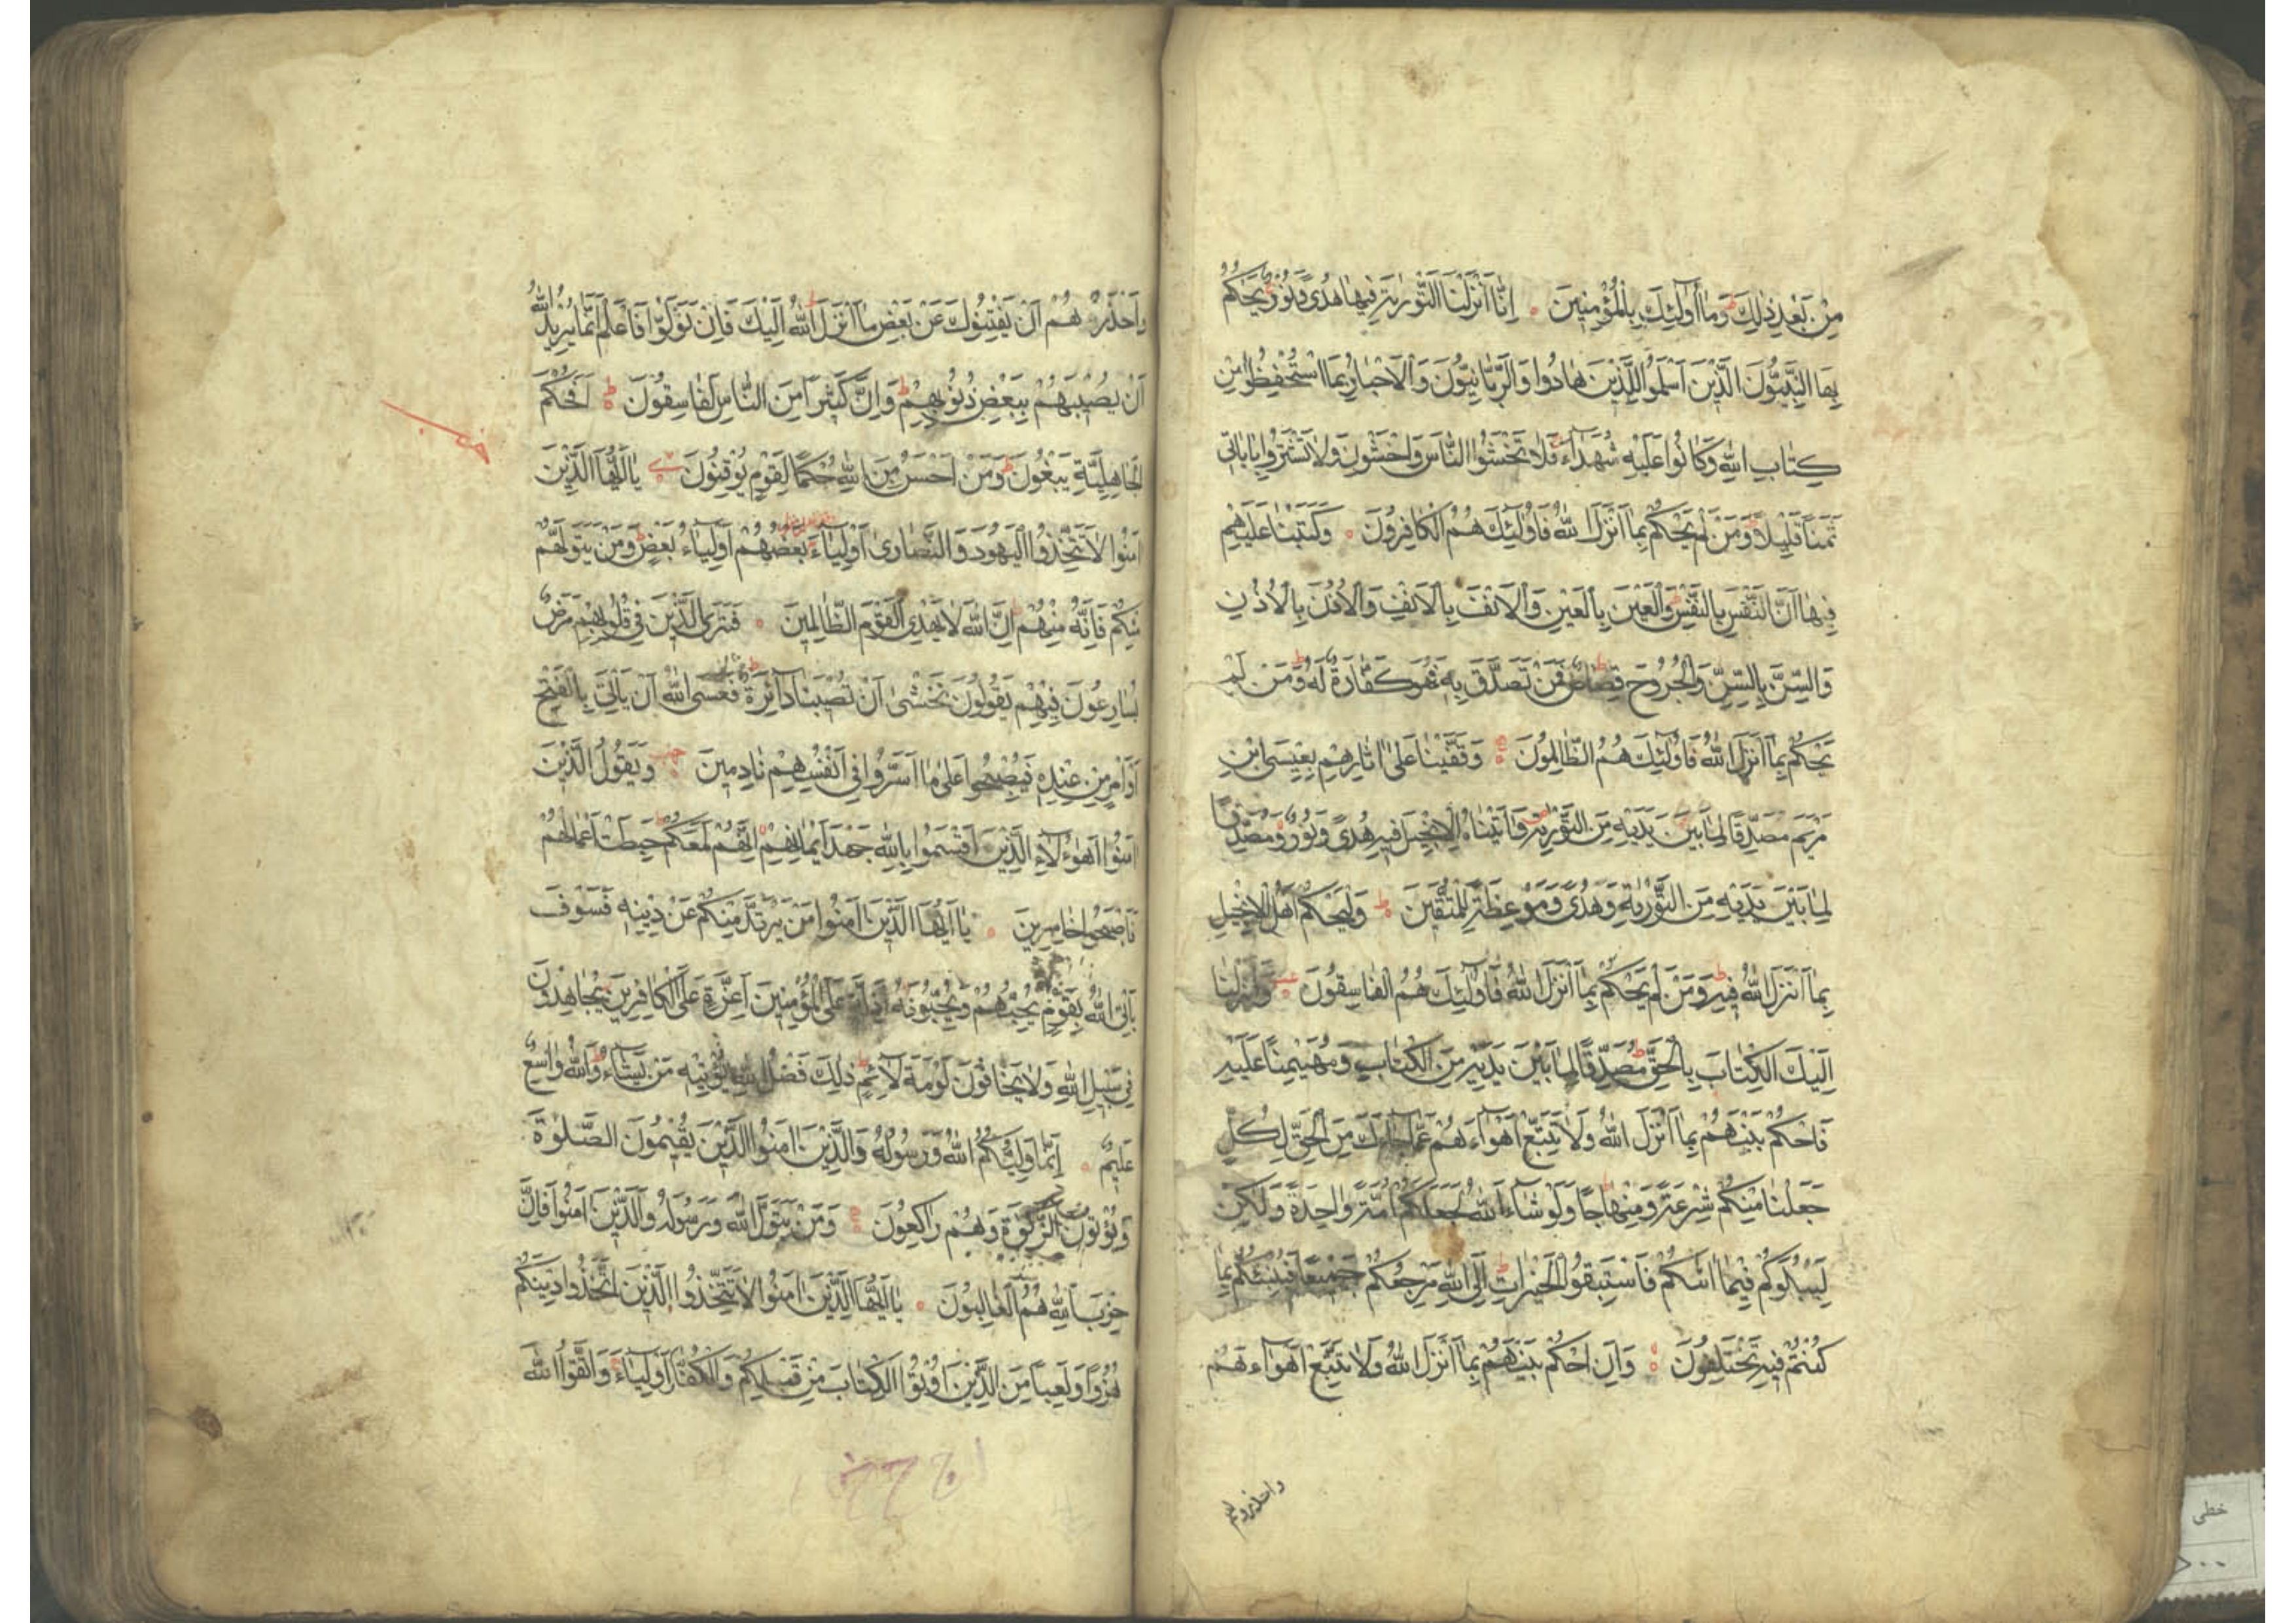 مِنْ بَعْدِ ذٰلِكَ وَمَا أُولٰئِكَ بِالْمُؤْمِنِينَ ۝ اِنَّا اَنْزَلْنَا التَّوْرٰيةَ فِيهَا هُدًى وَنُورٌ يَحْكُمُ
بِهَا النَّبِيُّونَ الَّذِينَ اَسْلَمُوا لِلَّذِينَ هَادُوا وَالرَّبَّانِيُّونَ وَالْاَحْبَارُ بِمَا اسْتُحْفِظُوا مِنْ
كِتَابِ اللهِ وَكَانُوا عَلَيْهِ شُهَدَاءَ فَلَا تَخْشَوُا النَّاسَ وَاخْشَوْنِ وَلَا تَشْتَرُوا بِاٰيَاتِي
ثَمَنًا قَلِيلًا وَمَنْ لَمْ يَحْكُمْ بِمَا اَنْزَلَ اللهُ فَاُولٰئِكَ هُمُ الْكَافِرُونَ ۝ وَكَتَبْنَا عَلَيْهِمْ
فِيهَا اَنَّ النَّفْسَ بِالنَّفْسِ وَالْعَيْنَ بِالْعَيْنِ وَالْاَنْفَ بِالْاَنْفِ وَالْاُذُنَ بِالْاُذُنِ
وَالسِّنَّ بِالسِّنِّ وَالْجُرُوحَ قِصَاصٌ فَمَنْ تَصَدَّقَ بِهِ فَهُوَ كَفَّارَةٌ لَهُ وَمَنْ لَمْ
يَحْكُمْ بِمَا اَنْزَلَ اللهُ فَاُولٰئِكَ هُمُ الظَّالِمُونَ ۝ وَقَفَّيْنَا عَلٰى اٰثَارِهِمْ بِعِيسَى ابْنِ
مَرْيَمَ مُصَدِّقًا لِمَا بَيْنَ يَدَيْهِ مِنَ التَّوْرٰيةِ وَاٰتَيْنَاهُ الْاِنْجِيلَ فِيهِ هُدًى وَنُورٌ وَمُصَدِّقًا
لِمَا بَيْنَ يَدَيْهِ مِنَ التَّوْرٰيةِ وَهُدًى وَمَوْعِظَةً لِلْمُتَّقِينَ ۝ وَلْيَحْكُمْ اَهْلُ الْاِنْجِيلِ
بِمَا اَنْزَلَ اللهُ فِيهِ وَمَنْ لَمْ يَحْكُمْ بِمَا اَنْزَلَ اللهُ فَاُولٰئِكَ هُمُ الْفَاسِقُونَ ۝ وَاَنْزَلْنَا
اِلَيْكَ الْكِتَابَ بِالْحَقِّ مُصَدِّقًا لِمَا بَيْنَ يَدَيْهِ مِنَ الْكِتَابِ وَمُهَيْمِنًا عَلَيْهِ
فَاحْكُمْ بَيْنَهُمْ بِمَا اَنْزَلَ اللهُ وَلَا تَتَّبِعْ اَهْوَاءَهُمْ عَمَّا جَاءَكَ مِنَ الْحَقِّ لِكُلٍّ
جَعَلْنَا مِنْكُمْ شِرْعَةً وَمِنْهَاجًا وَلَوْ شَاءَ اللهُ لَجَعَلَكُمْ اُمَّةً وَاحِدَةً وَلٰكِنْ
لِيَبْلُوَكُمْ فِيمَا اٰتٰيكُمْ فَاسْتَبِقُوا الْخَيْرَاتِ اِلَى اللهِ مَرْجِعُكُمْ جَمِيعًا فَيُنَبِّئُكُمْ بِمَا
كُنْتُمْ فِيهِ تَخْتَلِفُونَ ۝ وَاَنِ احْكُمْ بَيْنَهُمْ بِمَا اَنْزَلَ اللهُ وَلَا تَتَّبِعْ اَهْوَاءَهُمْ
واحذرهم
وَاحْذَرْهُمْ اَنْ يَفْتِنُوكَ عَنْ بَعْضِ مَا اَنْزَلَ اللهُ اِلَيْكَ فَاِنْ تَوَلَّوْا فَاعْلَمْ اَنَّمَا يُرِيدُ اللهُ
اَنْ يُصِيبَهُمْ بِبَعْضِ ذُنُوبِهِمْ وَاِنَّ كَثِيرًا مِنَ النَّاسِ لَفَاسِقُونَ ۝ اَفَحُكْمَ
الْجَاهِلِيَّةِ يَبْغُونَ وَمَنْ اَحْسَنُ مِنَ اللهِ حُكْمًا لِقَوْمٍ يُوقِنُونَ ۝ يَا اَيُّهَا الَّذِينَ
اٰمَنُوا لَا تَتَّخِذُوا الْيَهُودَ وَالنَّصَارٰى اَوْلِيَاءَ بَعْضُهُمْ اَوْلِيَاءُ بَعْضٍ وَمَنْ يَتَوَلَّهُمْ
مِنْكُمْ فَاِنَّهُ مِنْهُمْ اِنَّ اللهَ لَا يَهْدِي الْقَوْمَ الظَّالِمِينَ ۝ فَتَرَى الَّذِينَ فِي قُلُوبِهِمْ مَرَضٌ
يُسَارِعُونَ فِيهِمْ يَقُولُونَ نَخْشٰى اَنْ تُصِيبَنَا دَائِرَةٌ فَعَسَى اللهُ اَنْ يَاْتِيَ بِالْفَتْحِ
اَوْ اَمْرٍ مِنْ عِنْدِهِ فَيُصْبِحُوا عَلٰى مَا اَسَرُّوا فِي اَنْفُسِهِمْ نَادِمِينَ ۝ وَيَقُولُ الَّذِينَ
اٰمَنُوا اَهٰؤُلَاءِ الَّذِينَ اَقْسَمُوا بِاللهِ جَهْدَ اَيْمَانِهِمْ اِنَّهُمْ لَمَعَكُمْ حَبِطَتْ اَعْمَالُهُمْ
فَاَصْبَحُوا خَاسِرِينَ ۝ يَا اَيُّهَا الَّذِينَ اٰمَنُوا مَنْ يَرْتَدَّ مِنْكُمْ عَنْ دِينِهِ فَسَوْفَ
يَاْتِي اللهُ بِقَوْمٍ يُحِبُّهُمْ وَيُحِبُّونَهُ اَذِلَّةٍ عَلَى الْمُؤْمِنِينَ اَعِزَّةٍ عَلَى الْكَافِرِينَ يُجَاهِدُونَ
فِي سَبِيلِ اللهِ وَلَا يَخَافُونَ لَوْمَةَ لَائِمٍ ذٰلِكَ فَضْلُ اللهِ يُؤْتِيهِ مَنْ يَشَاءُ وَاللهُ وَاسِعٌ
عَلِيمٌ ۝ اِنَّمَا وَلِيُّكُمُ اللهُ وَرَسُولُهُ وَالَّذِينَ اٰمَنُوا الَّذِينَ يُقِيمُونَ الصَّلٰوةَ
وَيُؤْتُونَ الزَّكٰوةَ وَهُمْ رَاكِعُونَ ۝ وَمَنْ يَتَوَلَّ اللهَ وَرَسُولَهُ وَالَّذِينَ اٰمَنُوا فَاِنَّ
حِزْبَ اللهِ هُمُ الْغَالِبُونَ ۝ يَا اَيُّهَا الَّذِينَ اٰمَنُوا لَا تَتَّخِذُوا الَّذِينَ اتَّخَذُوا دِينَكُمْ
هُزُوًا وَلَعِبًا مِنَ الَّذِينَ اُوتُوا الْكِتَابَ مِنْ قَبْلِكُمْ وَالْكُفَّارَ اَوْلِيَاءَ وَاتَّقُوا اللهَ
خطی